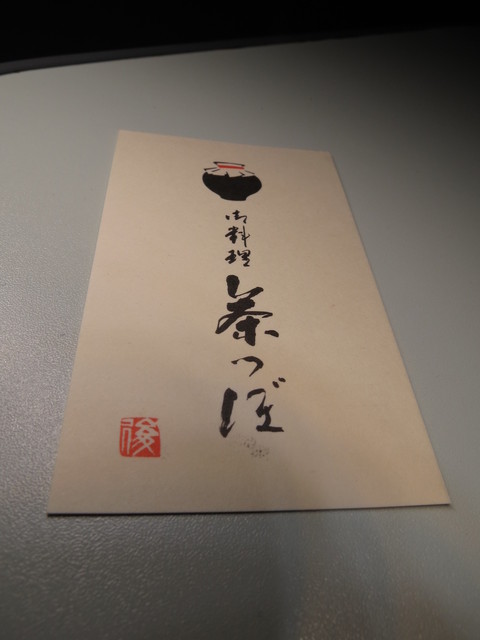 御料理
茶つぼ